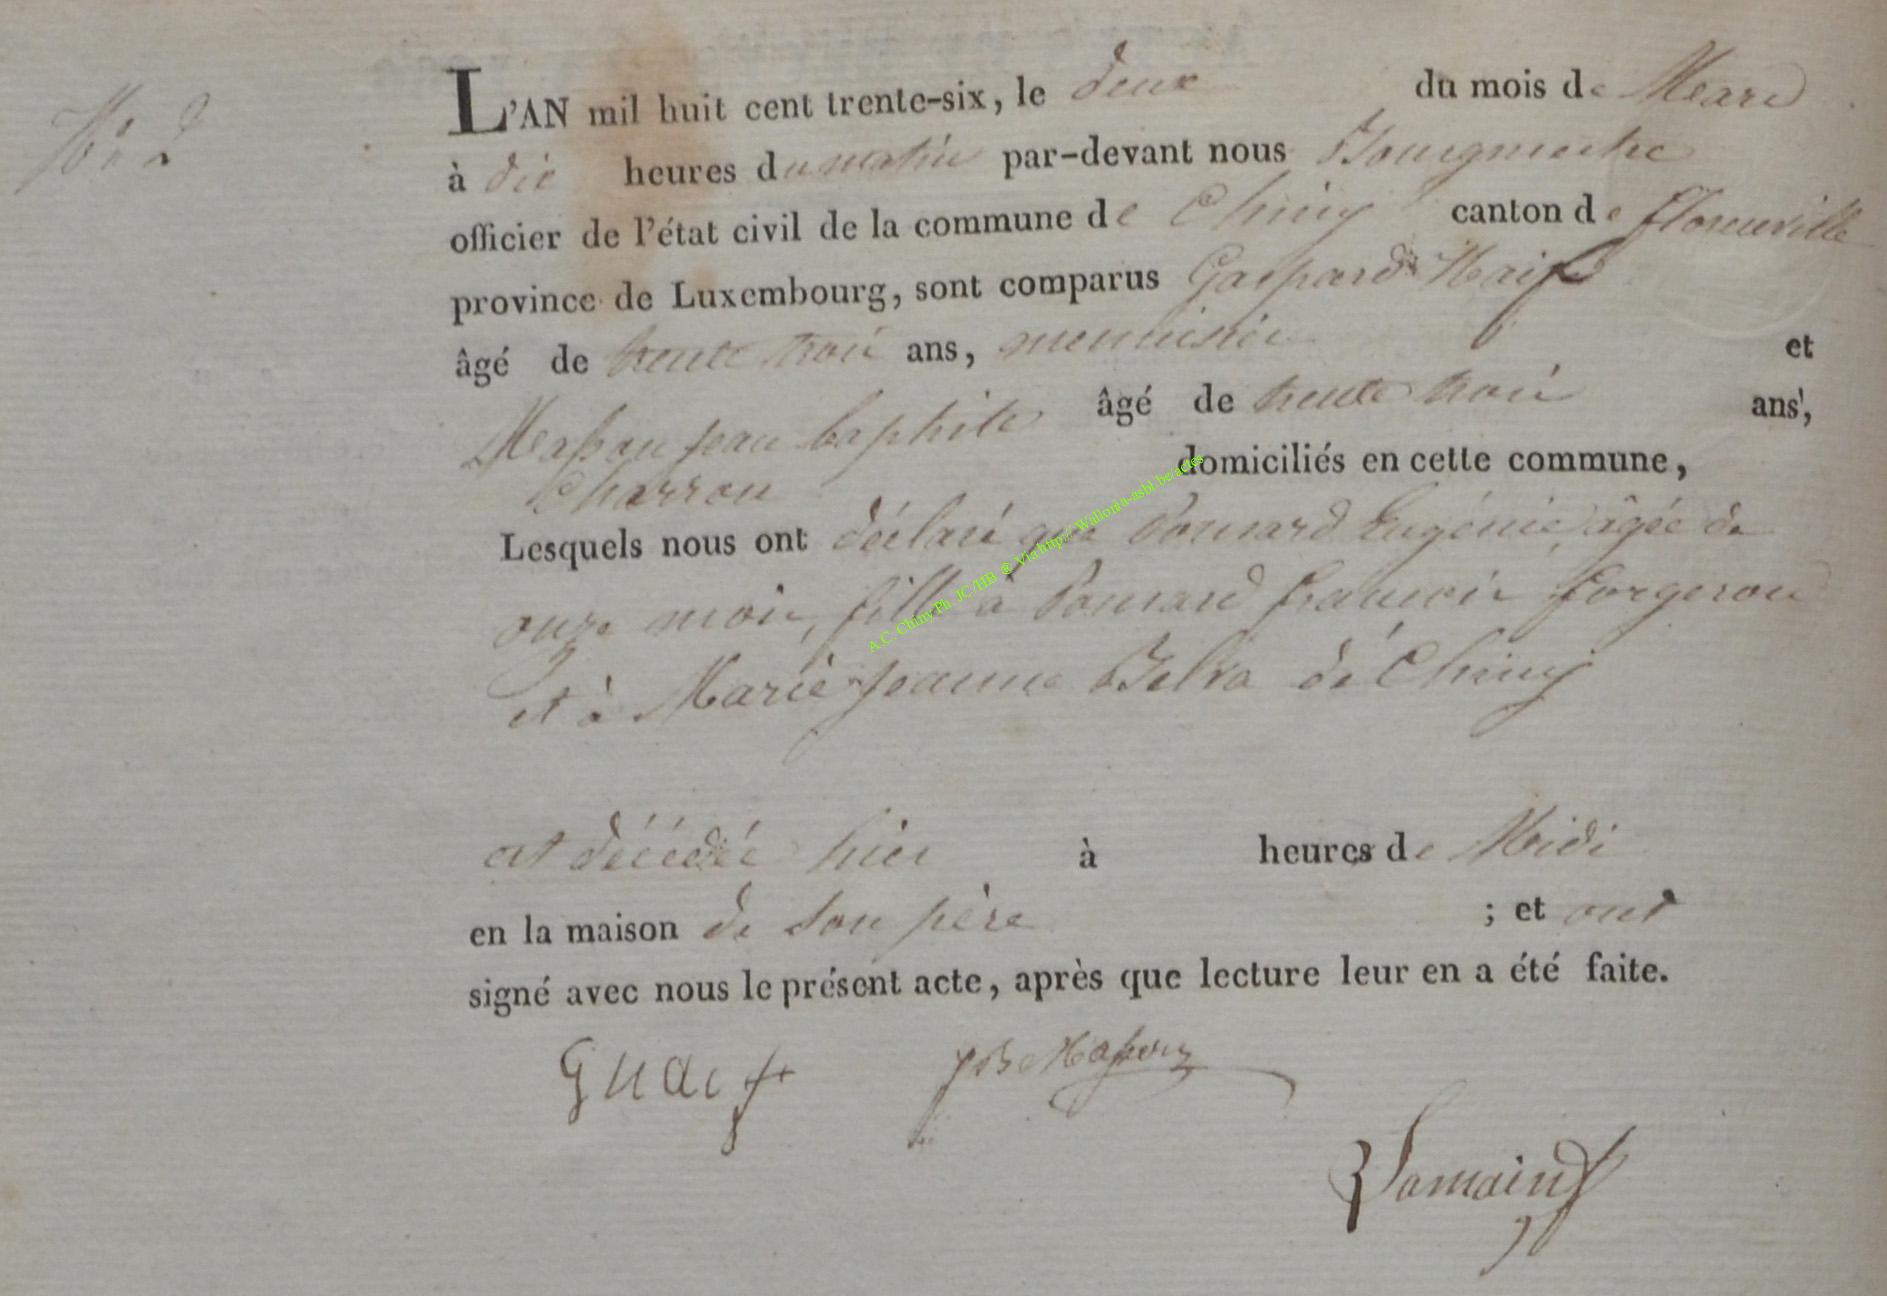 No 2
L'AN mil huit cent trente-six, le deux du mois de Mars
à dix heures du matin par-devant nous Bourgmestre
officier de l'état civil de la commune de Chiny canton de florenville
province de Luxembourg, sont comparus Gaspard Naif
âgé de trente trois ans, menuisier et
Masson jean baptiste âgé de trente trois ans,
charron domiciliés en cette commune,
Lesquels nous ont déclaré que Ponsard Eugénie, âgée de
onze mois, fille à Ponsard francois forgeron
et à Marie jeanne Belva de Chiny
est décédée hier à heures de Midi
en la maison de son père ; et ont
signé avec nous le présent acte, après que lecture leur en a été faite.
G Naif JB Masson
A.C. Chiny Ph. JC/HB @ Via http:// Wallonia-asbl.be/actes